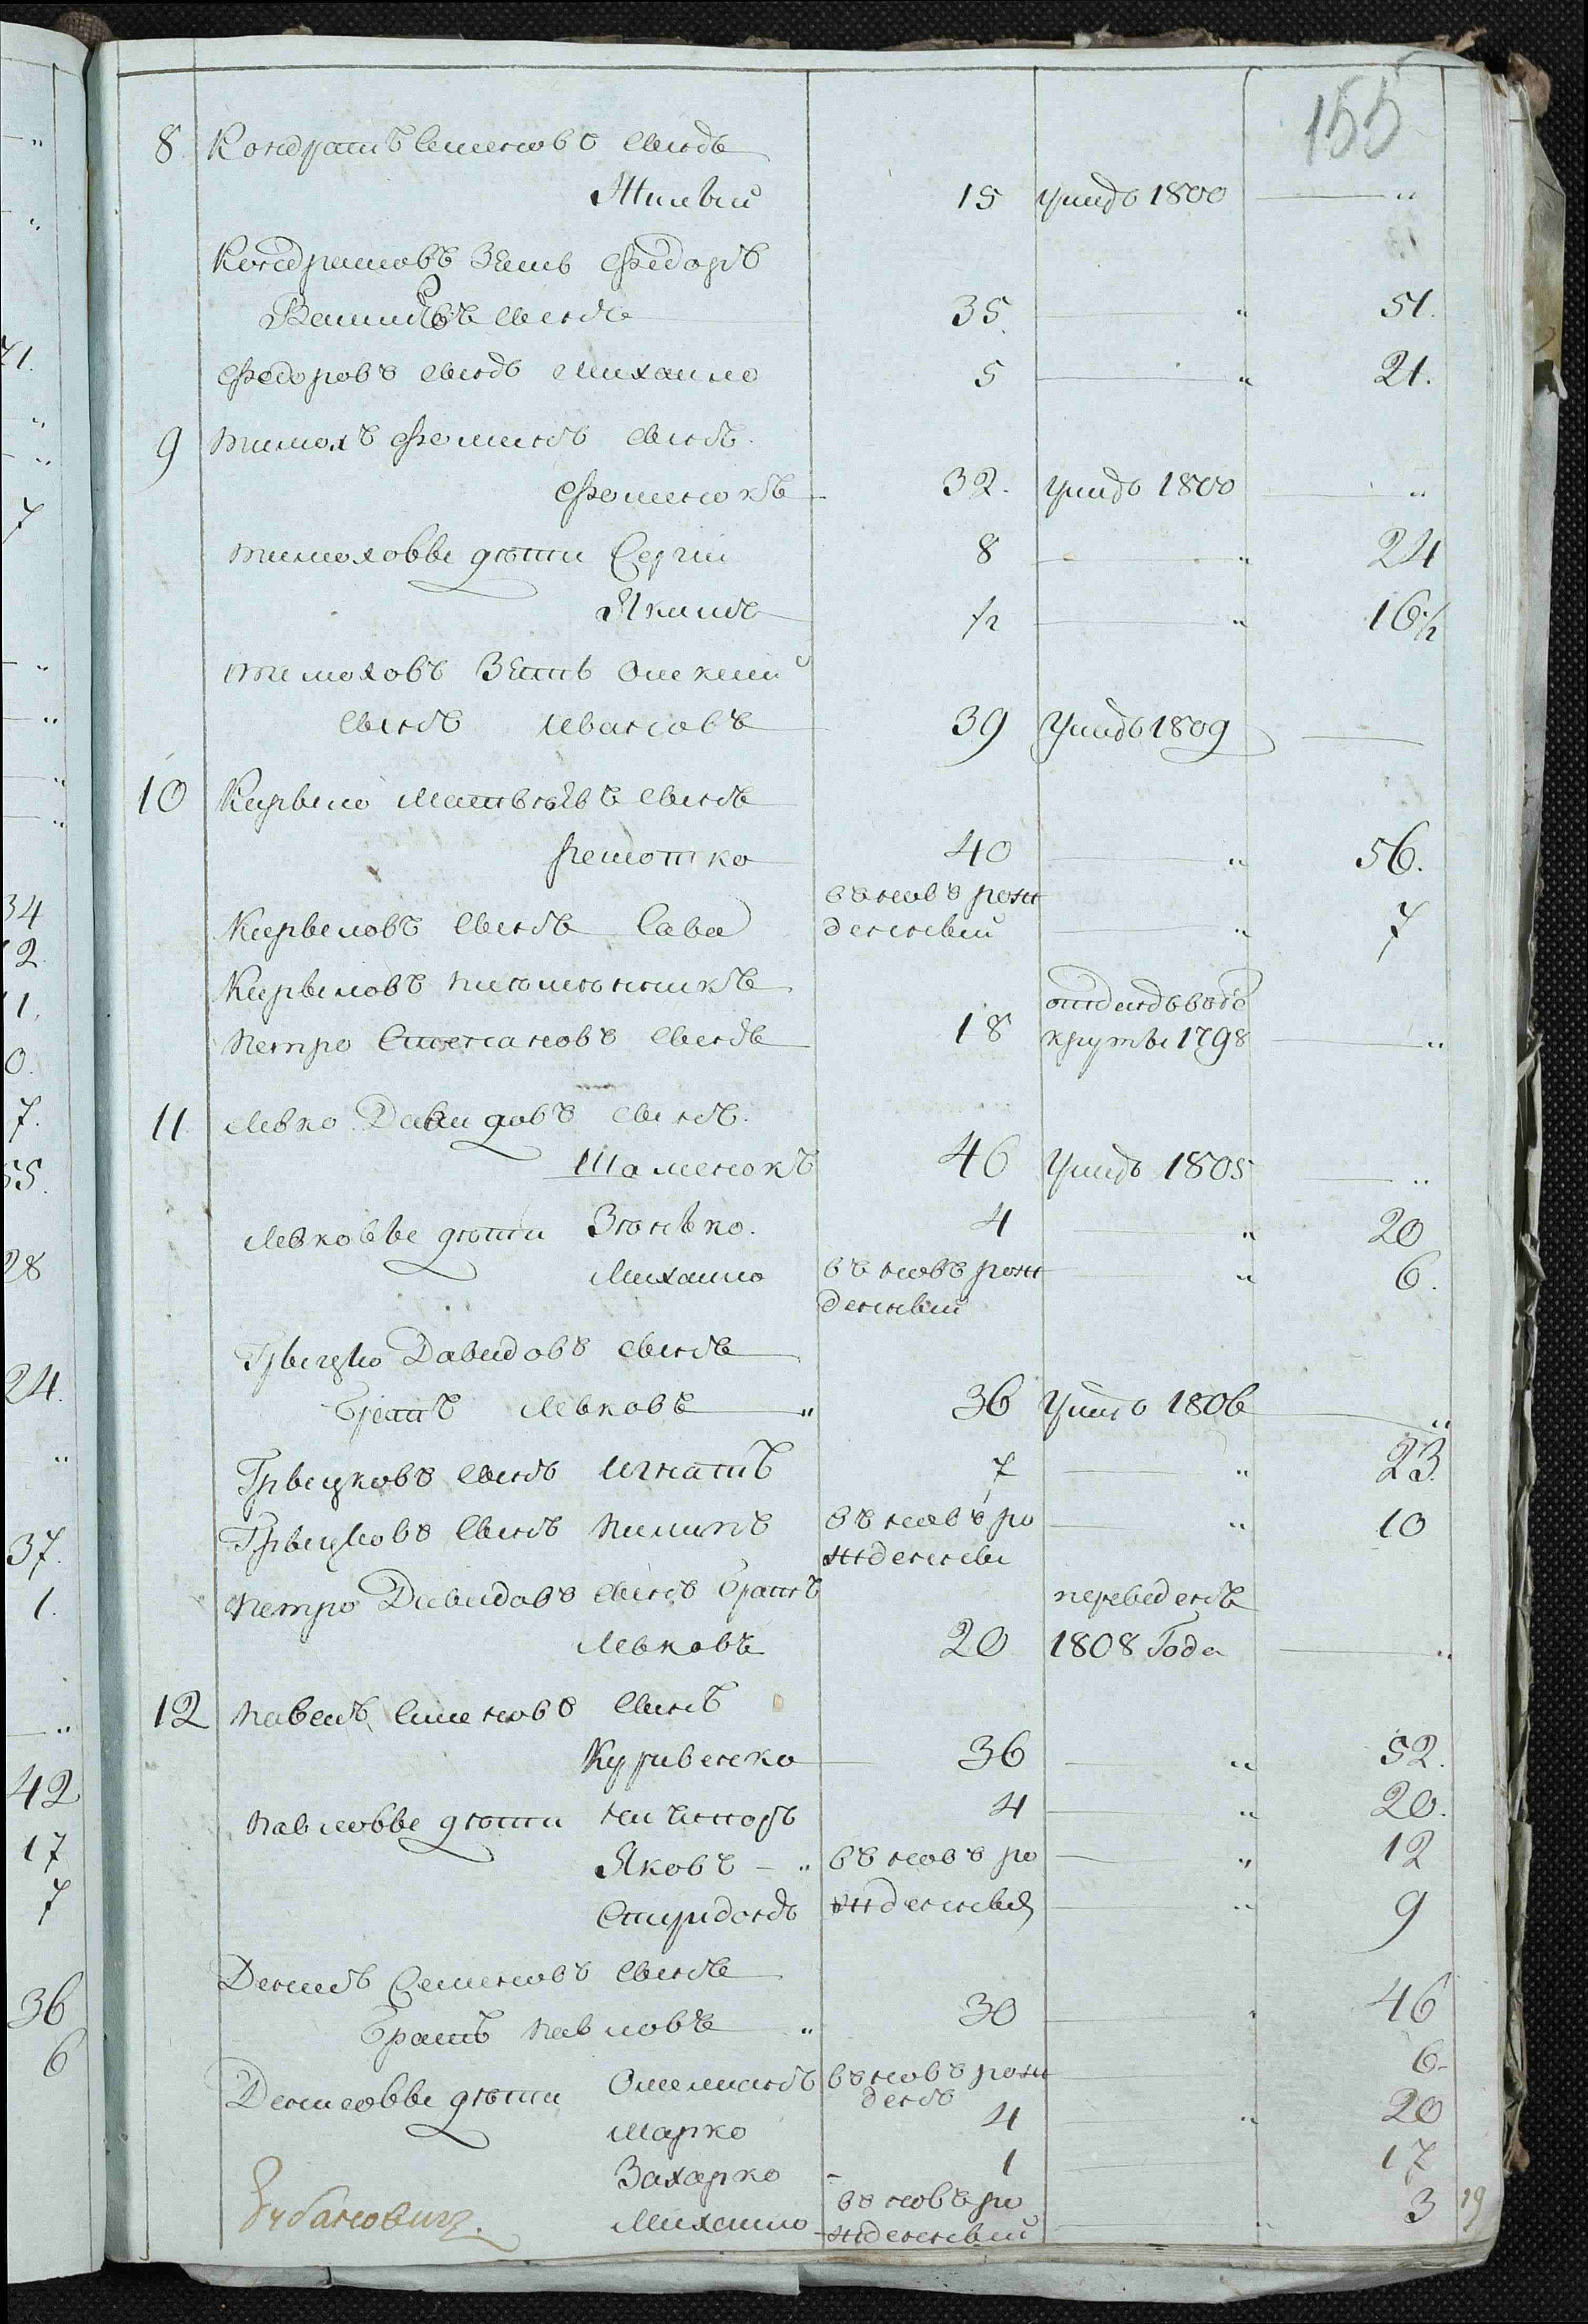 155
8 Кондратъ Семеновъ сынъ
Жилый 15 умръ 1800 — „
Кондратовъ Зять Федоръ
Вашилевъ сынъ 35. — „ 51.
Федоровъ сынъ Михайло 5 — „ 21.
9 Тимохъ Фоминъ сынъ
Фоменокъ 32. умръ 1800 „
Тимоховы дѣти Сергій 8 — „ 24
Якимъ 1/2 — „ 16 1/2
Тимоховъ Зять Олексій
сынъ Ивановъ 39 Умръ 1809 —
10 Кирыло Матвѣевъ сынъ
Решотко 40 — „ 56.
Кирыловъ сынъ Сава въ новѣ рож
денный — „ 7
Кирыловъ племѣнникъ
Петро Степановъ сынъ 18 отданъ въ ре
круты 1798 — „
11 Левко Давидовъ сынъ
Шаменокъ 46 Умръ 1805 — „
Левковы дѣти Зѣнько. 4 — „ 20
Михайло въ новѣ рож
денный — „ 6.
Грыцко Давидовъ сынъ
Братъ Левковъ „ 36 Умръ 1806 — „
Грыцковъ сынъ Игнатъ 7 — „ 23.
Грыцковъ сынъ Пилипъ въ новѣ ро
жденны — „ 10
Петро Давидовъ сынъ братъ
Левковъ 20 переведенъ
1808 Года — „
12 Павелъ Семеновъ сынъ
Куриленко 36 — „ 52.
Павловы дѣти Ничипоръ 4 — „ 20.
Яковъ — „ въ новѣ ро — „ 12
Спиридонъ жденныя — „ 9
Денисъ Семеновъ сынъ
братъ Павловъ „ 30 — „ 46
Денисовы дѣти Омелианъ въ новѣ рож
денъ 6
Марко 4 — „ 20
Захарко 1 — 17
Михайло въ новѣ ро
жденный — „ 3 19